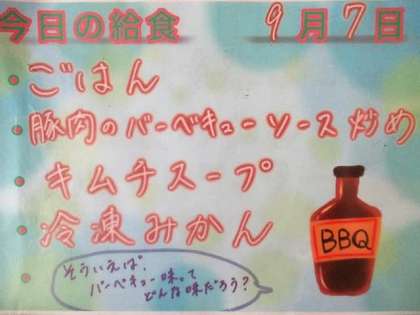 今日の給食 9月7日
・ごはん
・豚肉のバーベキューソース炒め
・キムチスープ
・冷凍みかん
・
そういえば、
バーベキュー味って
どんな味だろう?
BBQ